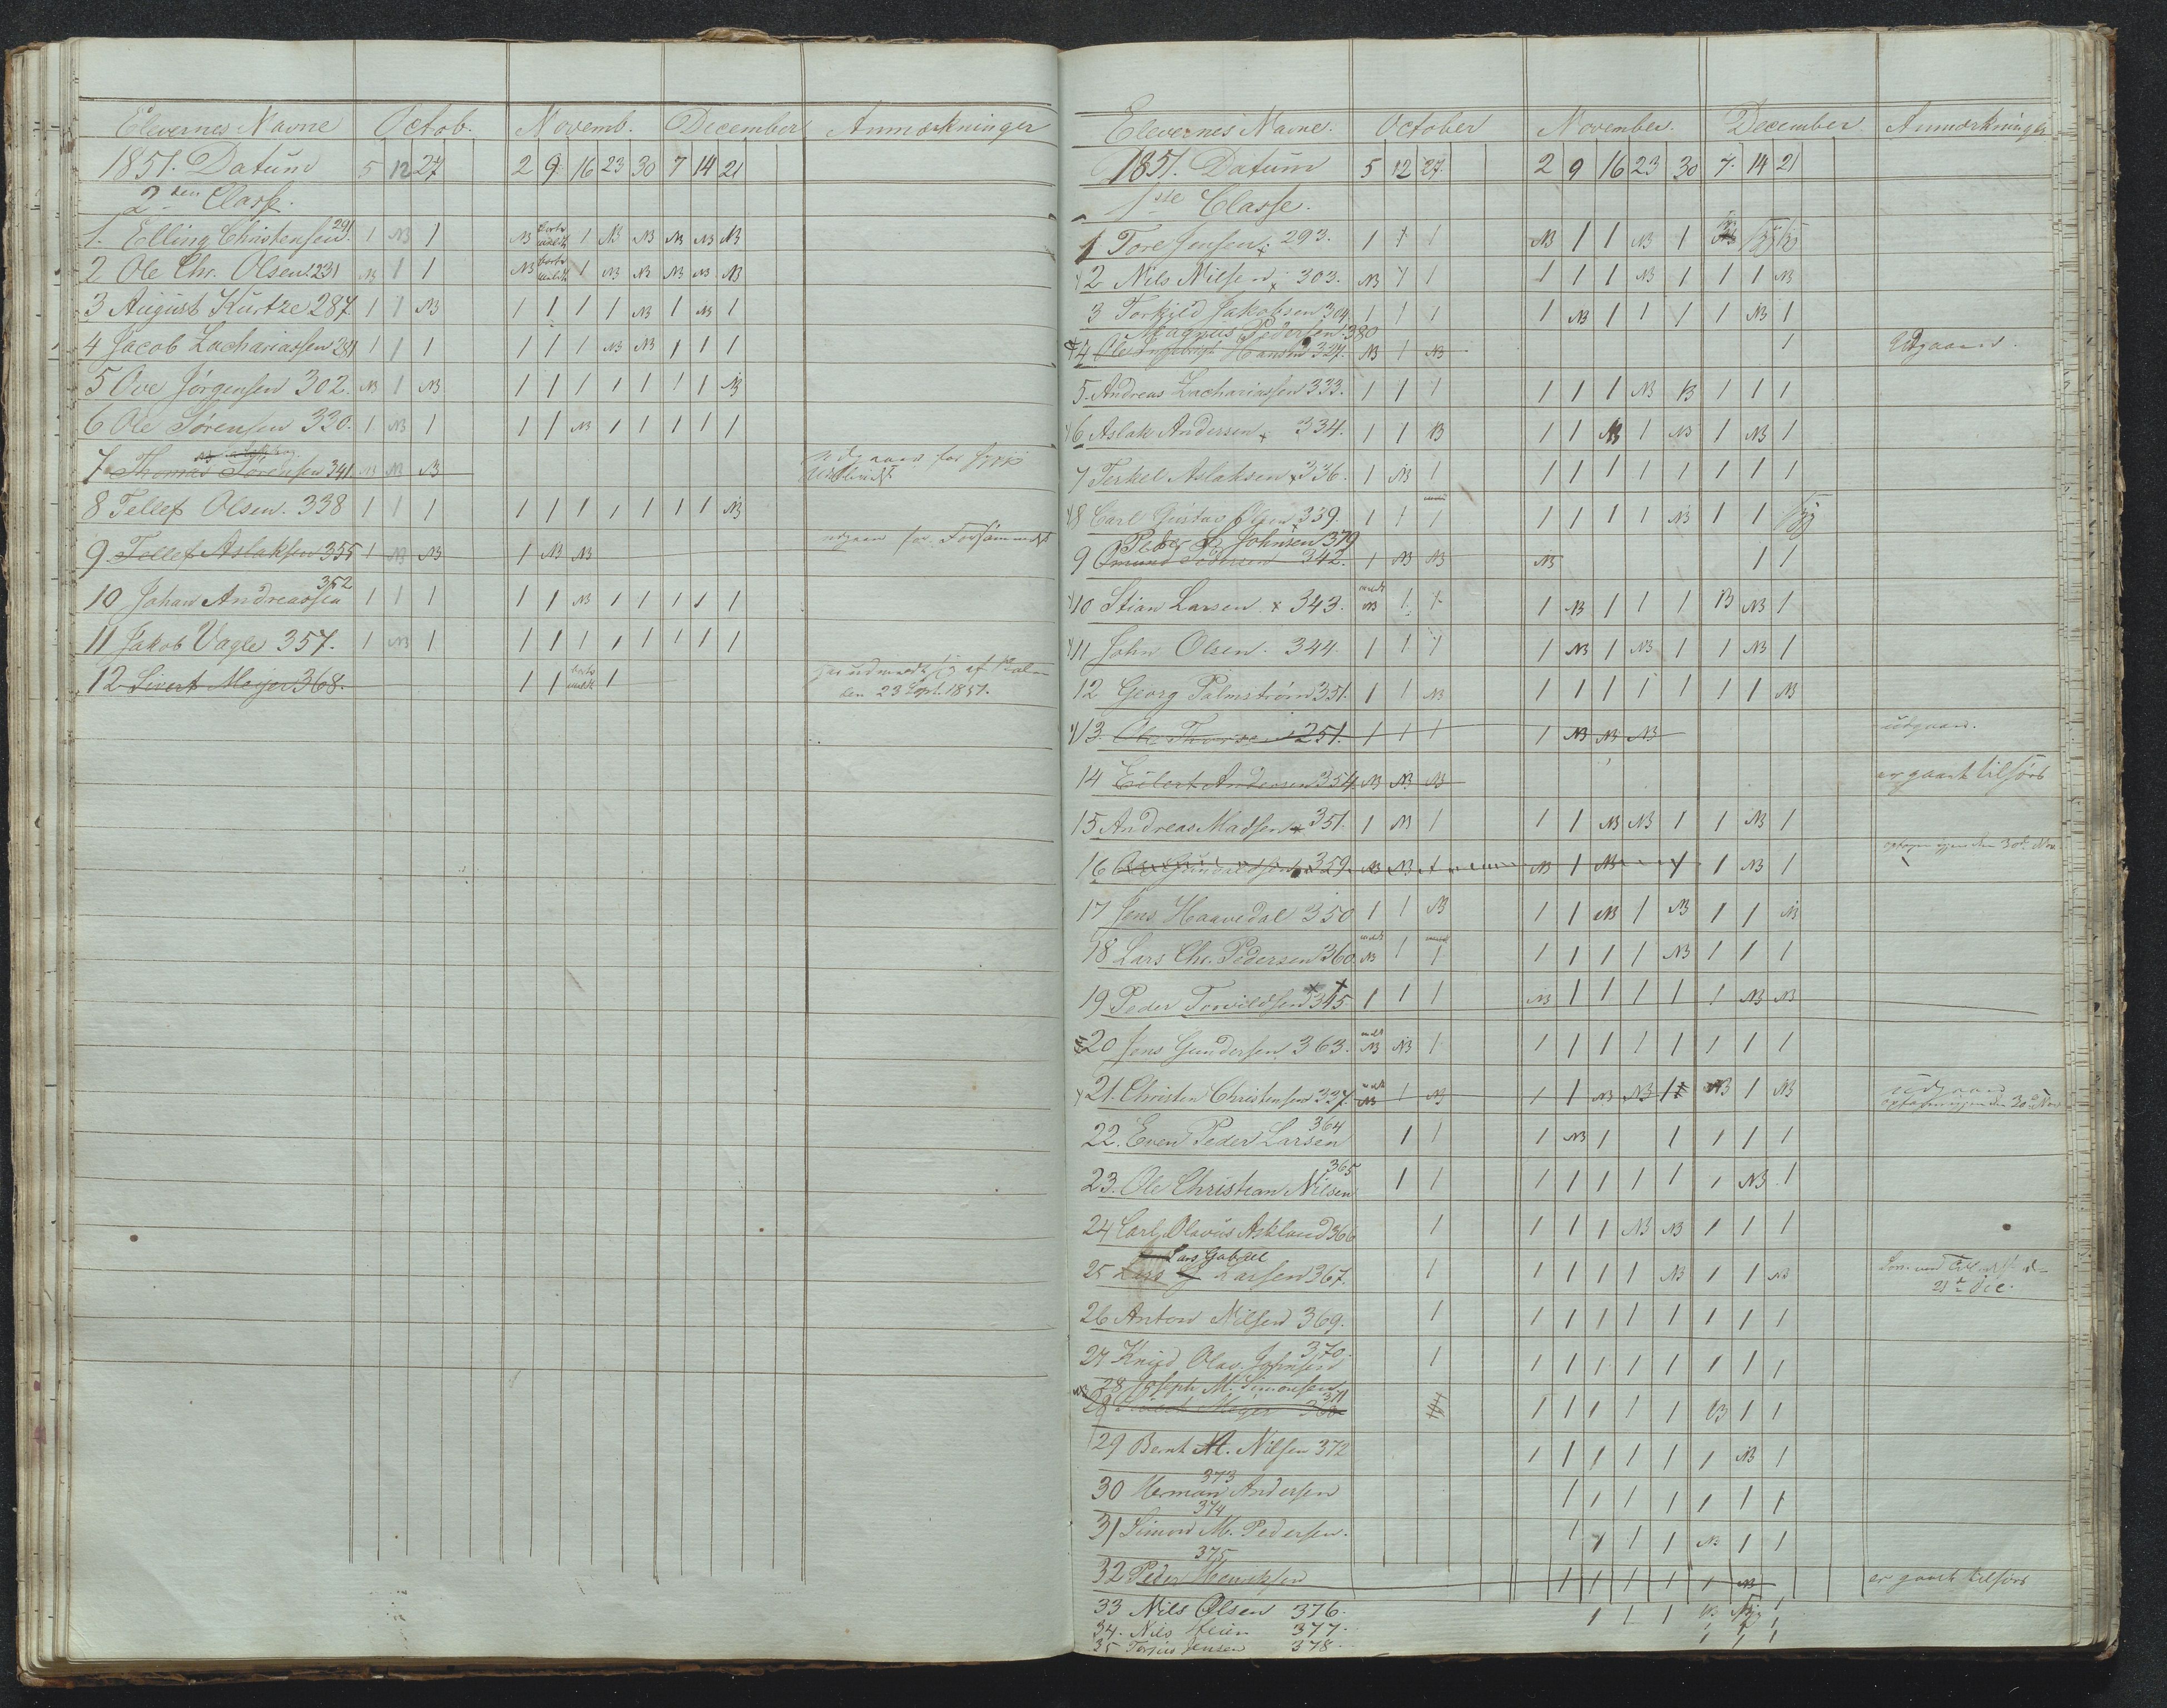 Elevernes Navne Octob. Novemb. December Anmærkninger
1851. Datum 5 12 27 2 9 16 23 30 7 14 21
2den Classe.
1. Elling Christensen 291. 1 NB 1 NB 1 NB NB NB NB NB
2 Ole Chr. Olsen 231 NB 1 1 NB 1 NB NB NB NB NB
3 August Kurtze 287 1 1 NB 1 1 1 1 NB 1 NB 1
4 Jacob Zachariassen 281 1 1 1 1 1 1 NB NB 1 1 1
5 Ove Jörgensen 302. NB 1 NB 1 1 1 1 1 1 1 NB
6 Ole Sörensen 330. 1 NB 1 1 1 NB 1 1 1 1 1
7 Thomas Sörensen 341. NB NB NB udgaaer for
8 Tellef Olsen. 338 1 1 1 1 1 1 1 1 1 1 NB
9 Tellef Aslaksen 355 1 NB NB 1 NB NB udgaaer for Forsömmelse
10 Johan Andreassen 352 1 1 1 1 1 NB 1 1 1 1 1
11 Jakob Vagle 357. 1 NB 1 1 1 1 1 1 1 1 1
12 Sivert Meijer 368. 1 1 1 har udmeldt sig af
den 23 1851.
Elevernes Navne. October November. December Anmærkninger
1851. Datum 5 12 27. 2 9 16 23 30 7. 14 21
1ste Classe.
1 Tore Jensen. 293. 1 1 1 NB 1 1 NB 1
2 Nils Nilsen 303. NB 1 1 1 1 1 NB 1 1 1 NB
3 Torkild Jakobsen 304 1 1 1 1 NB 1 1 1 1 NB 1
Magnus Pedersen 380 1
4 Ole Hansen 327. NB 1 NB Udgaaer.
5. Andreas Zachariassen 333. 1 1 1 1 1 1 NB B 1 1 1
6 Aslak Andersen 334. 1 1 B 1 1 NB 1 NB 1 NB 1
7 Terkel Aslaksen 336. 1 NB 1 1 1 1 1 1 1 1 1
8 Carl Gustav Olsen 339. 1 1 1 1 1 1 1 NB 1 1 syg
Peder Johnsen 379 1 1
9 Omund Pedersen 342. 1 NB NB NB
10 Stian Larsen 343. NB 1 1 1 NB 1 1 1 B NB 1
11 John Olsen. 344. 1 1 1 1 NB 1 NB 1 1 NB 1
12 Georg Palmström 351. 1 1 NB 1 1 1 1 1 1 1 NB
13. Ole 251. 1 1 1 1 NB NB NB udgaaer.
14 Eilert Andersen 354. NB NB NB er gaaet tilsjös
15 Andreas Madsen 351. 1 NB 1 1 1 NB NB 1 1 NB 1
16 Ole 359. NB NB NB 1 NB 1 1 NB 1 optagen igjen den 30te Nov.
17 Jens Haavedal 350 1 1 NB 1 1 NB 1 NB 1 1 NB
18 Lars Chr. Pedersen 360. NB 1 1 1 1 1 1 NB 1 1 1
19 Peder Torvildsen 345. 1 1 1 NB 1 1 1 1 1 NB NB
20 Jens Gundersen 363. NB NB 1 1 1 1 1 1 1 1 1
21. Christen Christensen 337. NB 1 NB 1 1 NB NB 1 NB 1 NB udgaaer
optagen igjen den 30te Nov.
22. Even Peder Larsen 364 1 1 1 NB 1 1 1 1 1
23. Ole Christian Nilsen 365 1 1 1 1 1 1 1 1 NB 1
24 Carl Olavus Askland 366 1 1 1 1 NB NB 1 1 1
Lars Gabriel
25 Larsen 367. 1 1 1 1 1 NB 1 1 NB
21de Dec.
26 Anton Nilsen 369. 1 1 1 1 1 1 1 1 1
27 Knud Olav. Johnsen 370. 1 1 1 1 1 1 1 1 1
28 Joseph M. Simonsen 371
28 Sivert Meyer 368 1 1 1 1 1 B 1 1
29 Bernt M. Nilsen 372 1 1 1 1 1 1 NB 1
30 Herman Andersen 373 1 1 1 1 1 1 1
31 Simon M. Pedersen. 374 1 1 1 1 NB 1 1
32 Peder Henriksen 375 1 1 1 1 1 NB er gaaet tilsjös
33 Nils Olsen 376. 1 1 1 NB 1
34. Nils Steen 377. 1 1 1
35 Terjus Jensen 378. 1 1 1